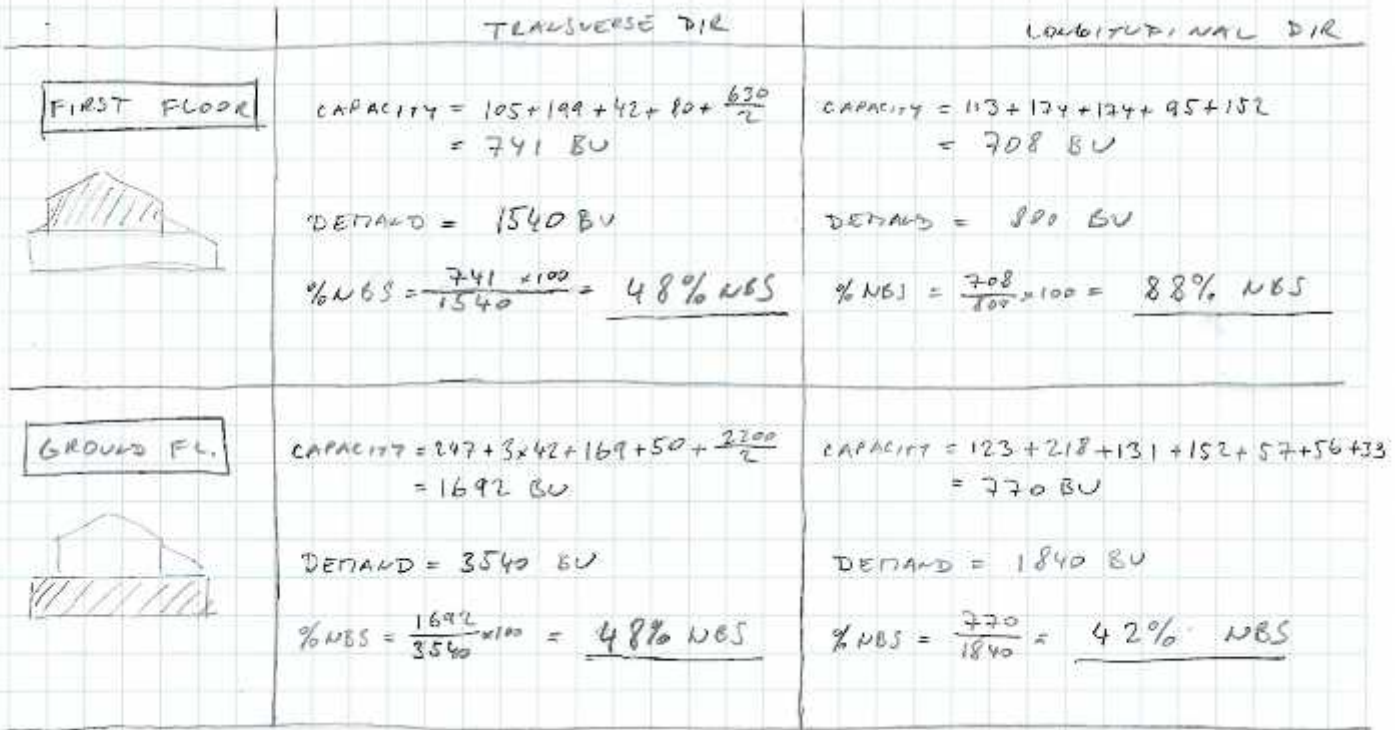 TRANSVERSE DIR
LONGITUDINAL DIR
FIRST FLOOR
CAPACITY = 105+199+42+80+ 630/2
= 741 BU
DEMAND = 1540 BU
%NBS = 741 ×100/1540 = 48% NBS
CAPACITY = 113+174+174+95+152
= 708 BU
DEMAND = 800 BU
%NBS = 708/800 ×100 = 88% NBS
GROUND FL.
CAPACITY = 247+3×42+169+50+ 2200/2
= 1692 BU
DEMAND = 3540 BU
%NBS = 1692/3540 ×100 = 48% NBS
CAPACITY = 123+218+131+152+57+56+33
= 770 BU
DEMAND = 1840 BU
%NBS = 770/1840 = 42% NBS